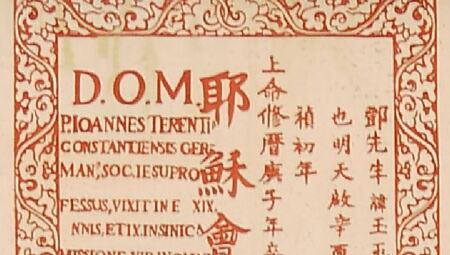 D.O.M.
P.IOANNES TERENTI
CONSTANTIENSIS GER
MAN⁹.SOC.IESU PRO
FESSUS, VIXIT IN E XIX,
NNIS, ET IX. IN SINICA
MISSIONE VIR IN OMNI
耶穌會
鄧先生諱玉
也明天啟辛酉
禎初年
上命修曆庚子年